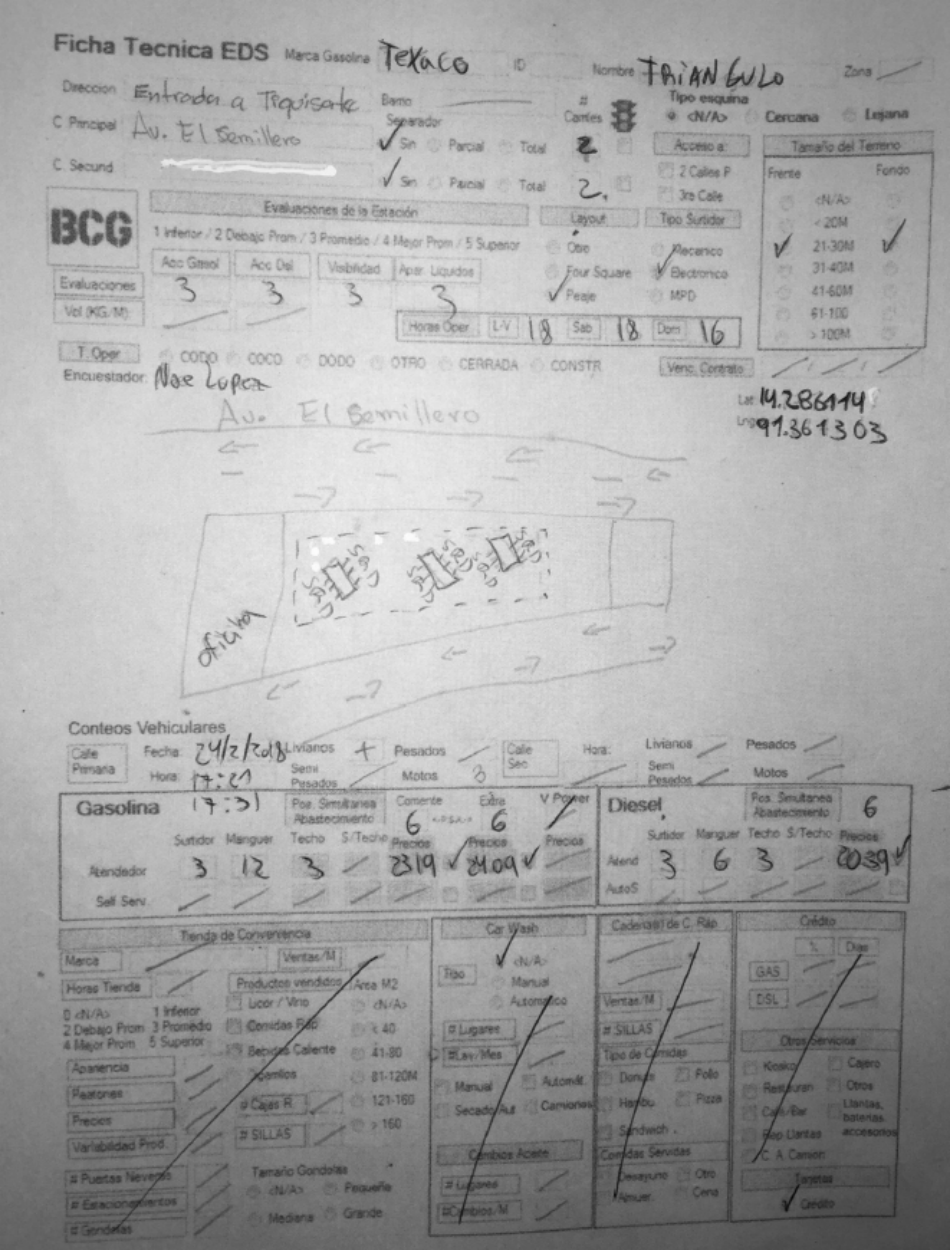 Ficha Tecnica EDS Marca Gasolina Texaco ID Nombre TRIANGULO Zona
Direccion Entrada a Tiquisate Barrio # Carriles Tipo esquina
<N/A> Cercana Lejana
C Principal Av. El Semillero Separador
Sin Parcial Total 2 Acceso a: Tamaño del Terreno
C. Secund Sin Parcial Total 2 2 Calles P Frente Fondo
3ra Calle <N/A>
BCG Evaluaciones de la Estación Layout Tipo Surtidor < 20M
1 Inferior / 2 Debajo Prom / 3 Promedio / 4 Mejor Prom / 5 Superior Otro Mecanico 21-30M
Acc Gasol Acc Dsl Visibilidad Apar. Liquidos Four Square Electronico 31-40M
Evaluaciones 3 3 3 3 Peaje MPD 41-60M
Vol (KG/M) 61-100
Horas Oper L-V 18 Sab 18 Dom 16 > 100M
T. Oper CODO COCO DODO OTRO CERRADA CONSTR Venc. Contrato
Encuestador: Noe Lopez
Lat 14.286114
Lng 91.361303
Av. El Semillero
oficina
Conteos Vehiculares
Calle Primaria Fecha: 24/2/2018 Livianos Pesados Calle Sec Hora: Livianos Pesados
Hora: 17:21 Semi Pesados Motos 3 Semi Pesados Motos
Gasolina 17:31 Pos. Simultanea Abastecimiento Corriente 6 Extra 6 V Power Diesel Pos. Simultanea Abastecimiento 6
Surtidor Manguer Techo S/Techo Precios Precios Precios Surtidor Manguer Techo S/Techo Precios
Atendedor 3 12 3 2319 2409 Atend 3 6 3 2039
Self Serv. AutoS
Tienda de Conveniencia Car Wash Cadena(s) de C. Rap Crédito
Marca Ventas/M <N/A> % Dias
Horas Tienda Productos vendidos Area M2 Tipo Manual GAS
0 <N/A> 1 Inferior Licor / Vino <N/A> Automatico Ventas/M DSL
2 Debajo Prom 3 Promedio Comidas Rap < 40 # Lugares # SILLAS
4 Mejor Prom 5 Superior Bebidas Caliente 41-80 #Lav/Mes Tipo de Comidas Otros Servicios
Apariencia 81-120M Manual Automát. Donuts Pollo Kiosko Cajero
Peatones # Cajas R. 121-160 Secado Aut Camiones Hambu Pizza Restauran Otros
Precios # SILLAS > 160 Sandwich Cafe/Bar Llantas, baterias, accesorios
Variabilidad Prod. Cambios Aceite Comidas Servidas Rep Llantas
# Puertas Neveras Tamaño Gondolas # Lugares Desayuno Otro C. A. Camion
# Estacionamientos <N/A> Pequeña #Cambios/M Almuer. Cena Tarjetas
# Gondolas Mediana Grande Crédito